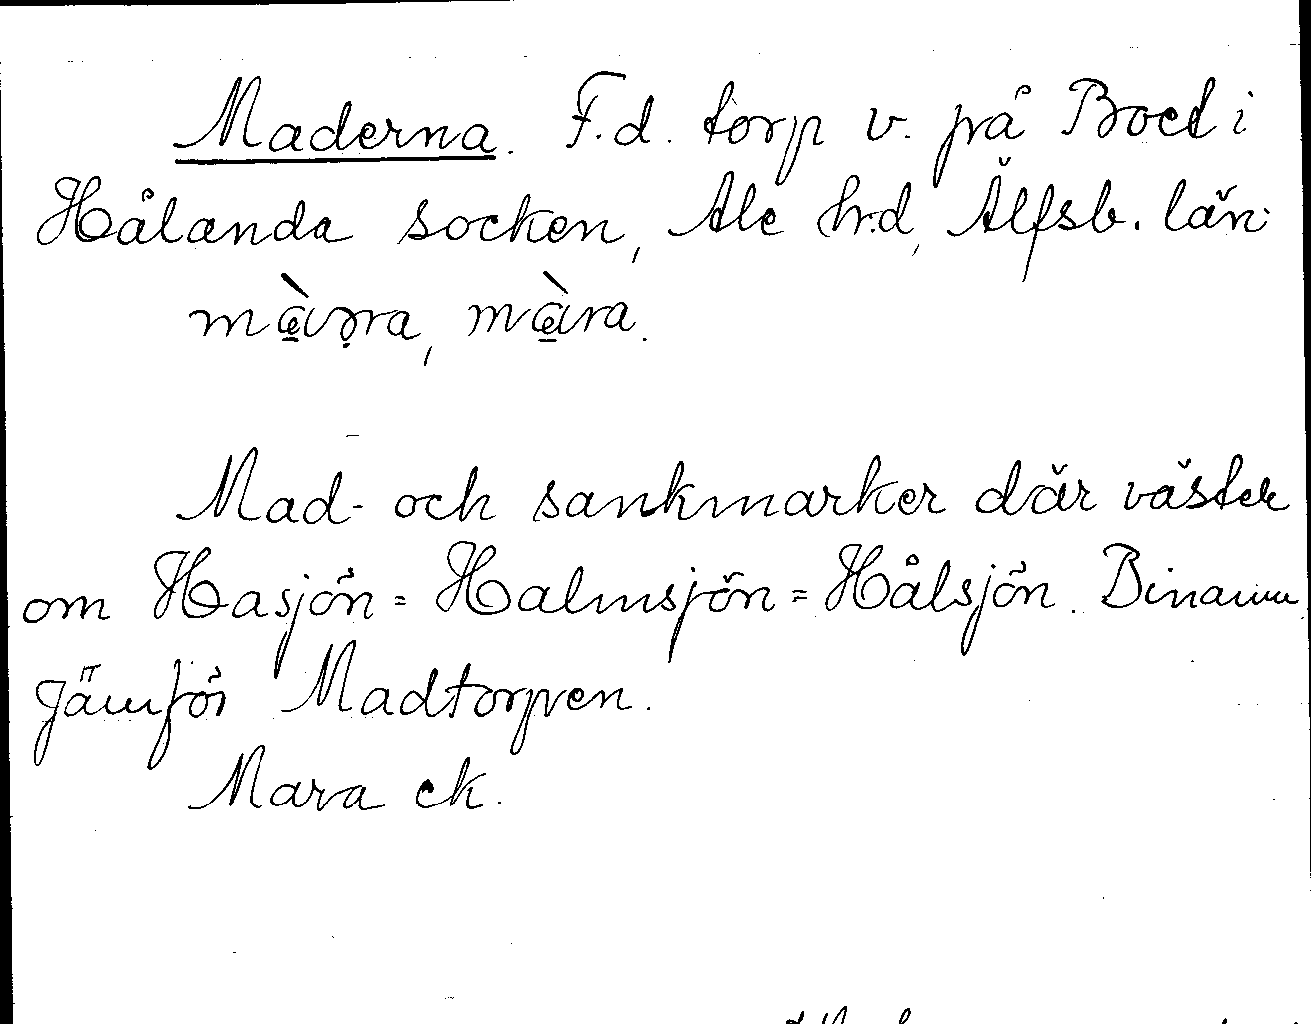 Maderna. F.d. torp v. på Boet i
Hålanda socken, Ale hrd, Älfsb. län.
màəra, màra.
Mad- och sankmarker där väster
om Hasjön = Halmsjön = Hålsjön. Binamn
jämför Madtorpen.
Mara ek.